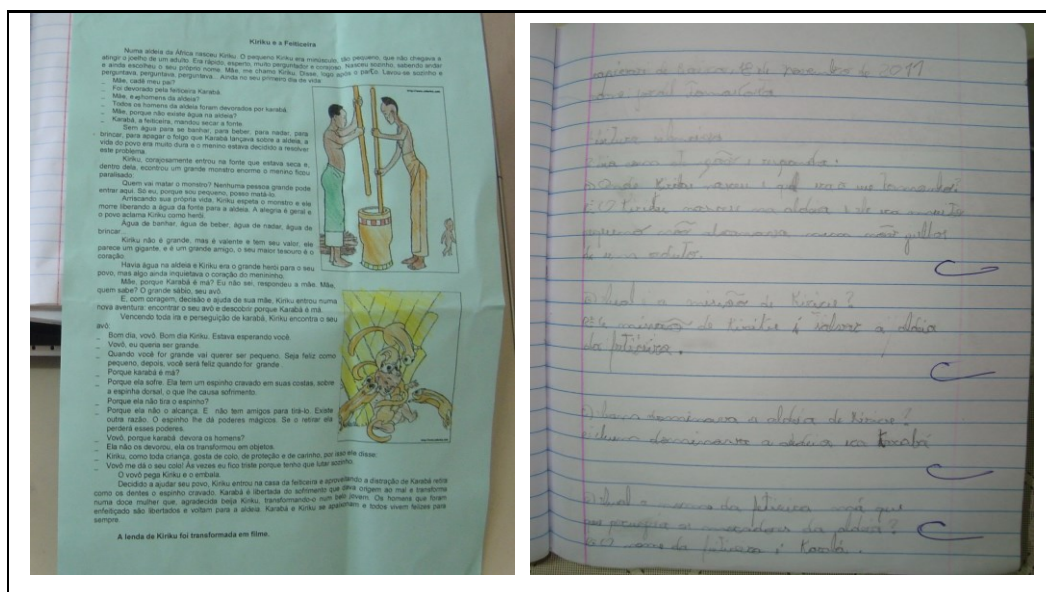 Kiriku e a Feiticeira
Numa aldeia da África nasceu Kiriku. O pequeno Kiriku era minúsculo, tão pequeno, que não chegava a
atingir o joelho de um adulto. Era rápido, esperto, muito perguntador e corajoso. Nasceu sozinho, sabendo andar
e ainda escolheu o seu próprio nome. Mãe, me chamo Kiriku. Disse, logo após o parto. Lavou-se sozinho e
perguntava, perguntava, perguntava... Ainda no seu primeiro dia de vida:
_ Mãe, cadê meu pai?
_ Foi devorado pela feiticeira Karabá.
_ Mãe, e os homens da aldeia?
_ Todos os homens da aldeia foram devorados por karabá.
_ Mãe, porque não existe água na aldeia?
_ Karabá, a feiticeira, mandou secar a fonte.
Sem água para se banhar, para beber, para nadar, para
brincar, para apagar o folgo que Karabá lançava sobre a aldeia, a
vida do povo era muito dura e o menino estava decidido a resolver
este problema.
Kiriku, corajosamente entrou na fonte que estava seca e,
dentro dela, econtrou um grande monstro enorme o menino ficou
paralisado:
Quem vai matar o monstro? Nenhuma pessoa grande pode
entrar aqui. Só eu, porque sou pequeno, posso matá-lo.
Arriscando sua própria vida, Kiriku espeta o monstro e ele
morre liberando a água da fonte para a aldeia. A alegria é geral e
o povo aclama Kiriku como herói.
Água de banhar, água de beber, água de nadar, água de
brincar...
Kiriku não é grande, mas é valente e tem seu valor, ele
parece um gigante, e é um grande amigo, o seu maior tesouro é o
coração.
Havia água na aldeia e Kiriku era o grande herói para o seu
povo, mas algo ainda inquietava o coração do menininho.
Mãe, porque Karabá é má? Eu não sei, respondeu a mãe. Mãe,
quem sabe? O grande sábio, seu avô.
E, com coragem, decisão e ajuda de sua mãe, Kiriku entrou numa
nova aventura: encontrar o seu avô e descobrir porque Karabá é má.
Vencendo toda ira e perseguição de karabá, Kiriku encontra o seu
avô:
_ Bom dia, vovô. Bom dia Kiriku. Estava esperando você.
_ Vovô, eu queria ser grande.
_ Quando você for grande vai querer ser pequeno. Seja feliz como
pequeno, depois, você será feliz quando for grande.
_ Porque karabá é má?
_ Porque ela sofre. Ela tem um espinho cravado em suas costas, sobre
a espinha dorsal, o que lhe causa sofrimento.
_ Porque ela não tira o espinho?
_ Porque ela não o alcança. E não tem amigos para tirá-lo. Existe
outra razão. O espinho lhe dá poderes mágicos. Se o retirar ela
perderá esses poderes.
_ Vovô, porque karabá devora os homens?
_ Ela não os devorou, ela os transformou em objetos.
_ Kiriku, como toda criança, gosta de colo, de proteção e de carinho, por isso ele disse:
_ Vovô me dá o seu colo! Às vezes eu fico triste porque tenho que lutar sozinho.
O vovô pega Kiriku e o embala.
Decidido a ajudar seu povo, Kiriku entrou na casa da feiticeira e aproveitando a distração de Karabá retira
como os dentes o espinho cravado. Karabá é libertada do sofrimento que dava origem ao mal e transforma
numa doce mulher que, agradecida beija Kiriku, transformando-o num belo jovem. Os homens que foram
enfeitiçado são libertados e voltam para a aldeia. Karabá e Kiriku se apaixonam e todos vivem felizes para
sempre.
A lenda de Kiriku foi transformada em filme.
de 2011
e responda.
Onde Kiriku nasceu e qual era o seu tamanho?
O Kiriku nasceu na aldeia e ele era muito
pequeno não
Qual é a missão de Kiriku?
missão de Kiriku é salvar a aldeia
da feiticeira.
dominava a aldeia de Kiriku?
a aldeia era Karabá
Qual o nome da feiticeira má que
os moradores da aldeia?
O nome da feiticeira é Karabá.